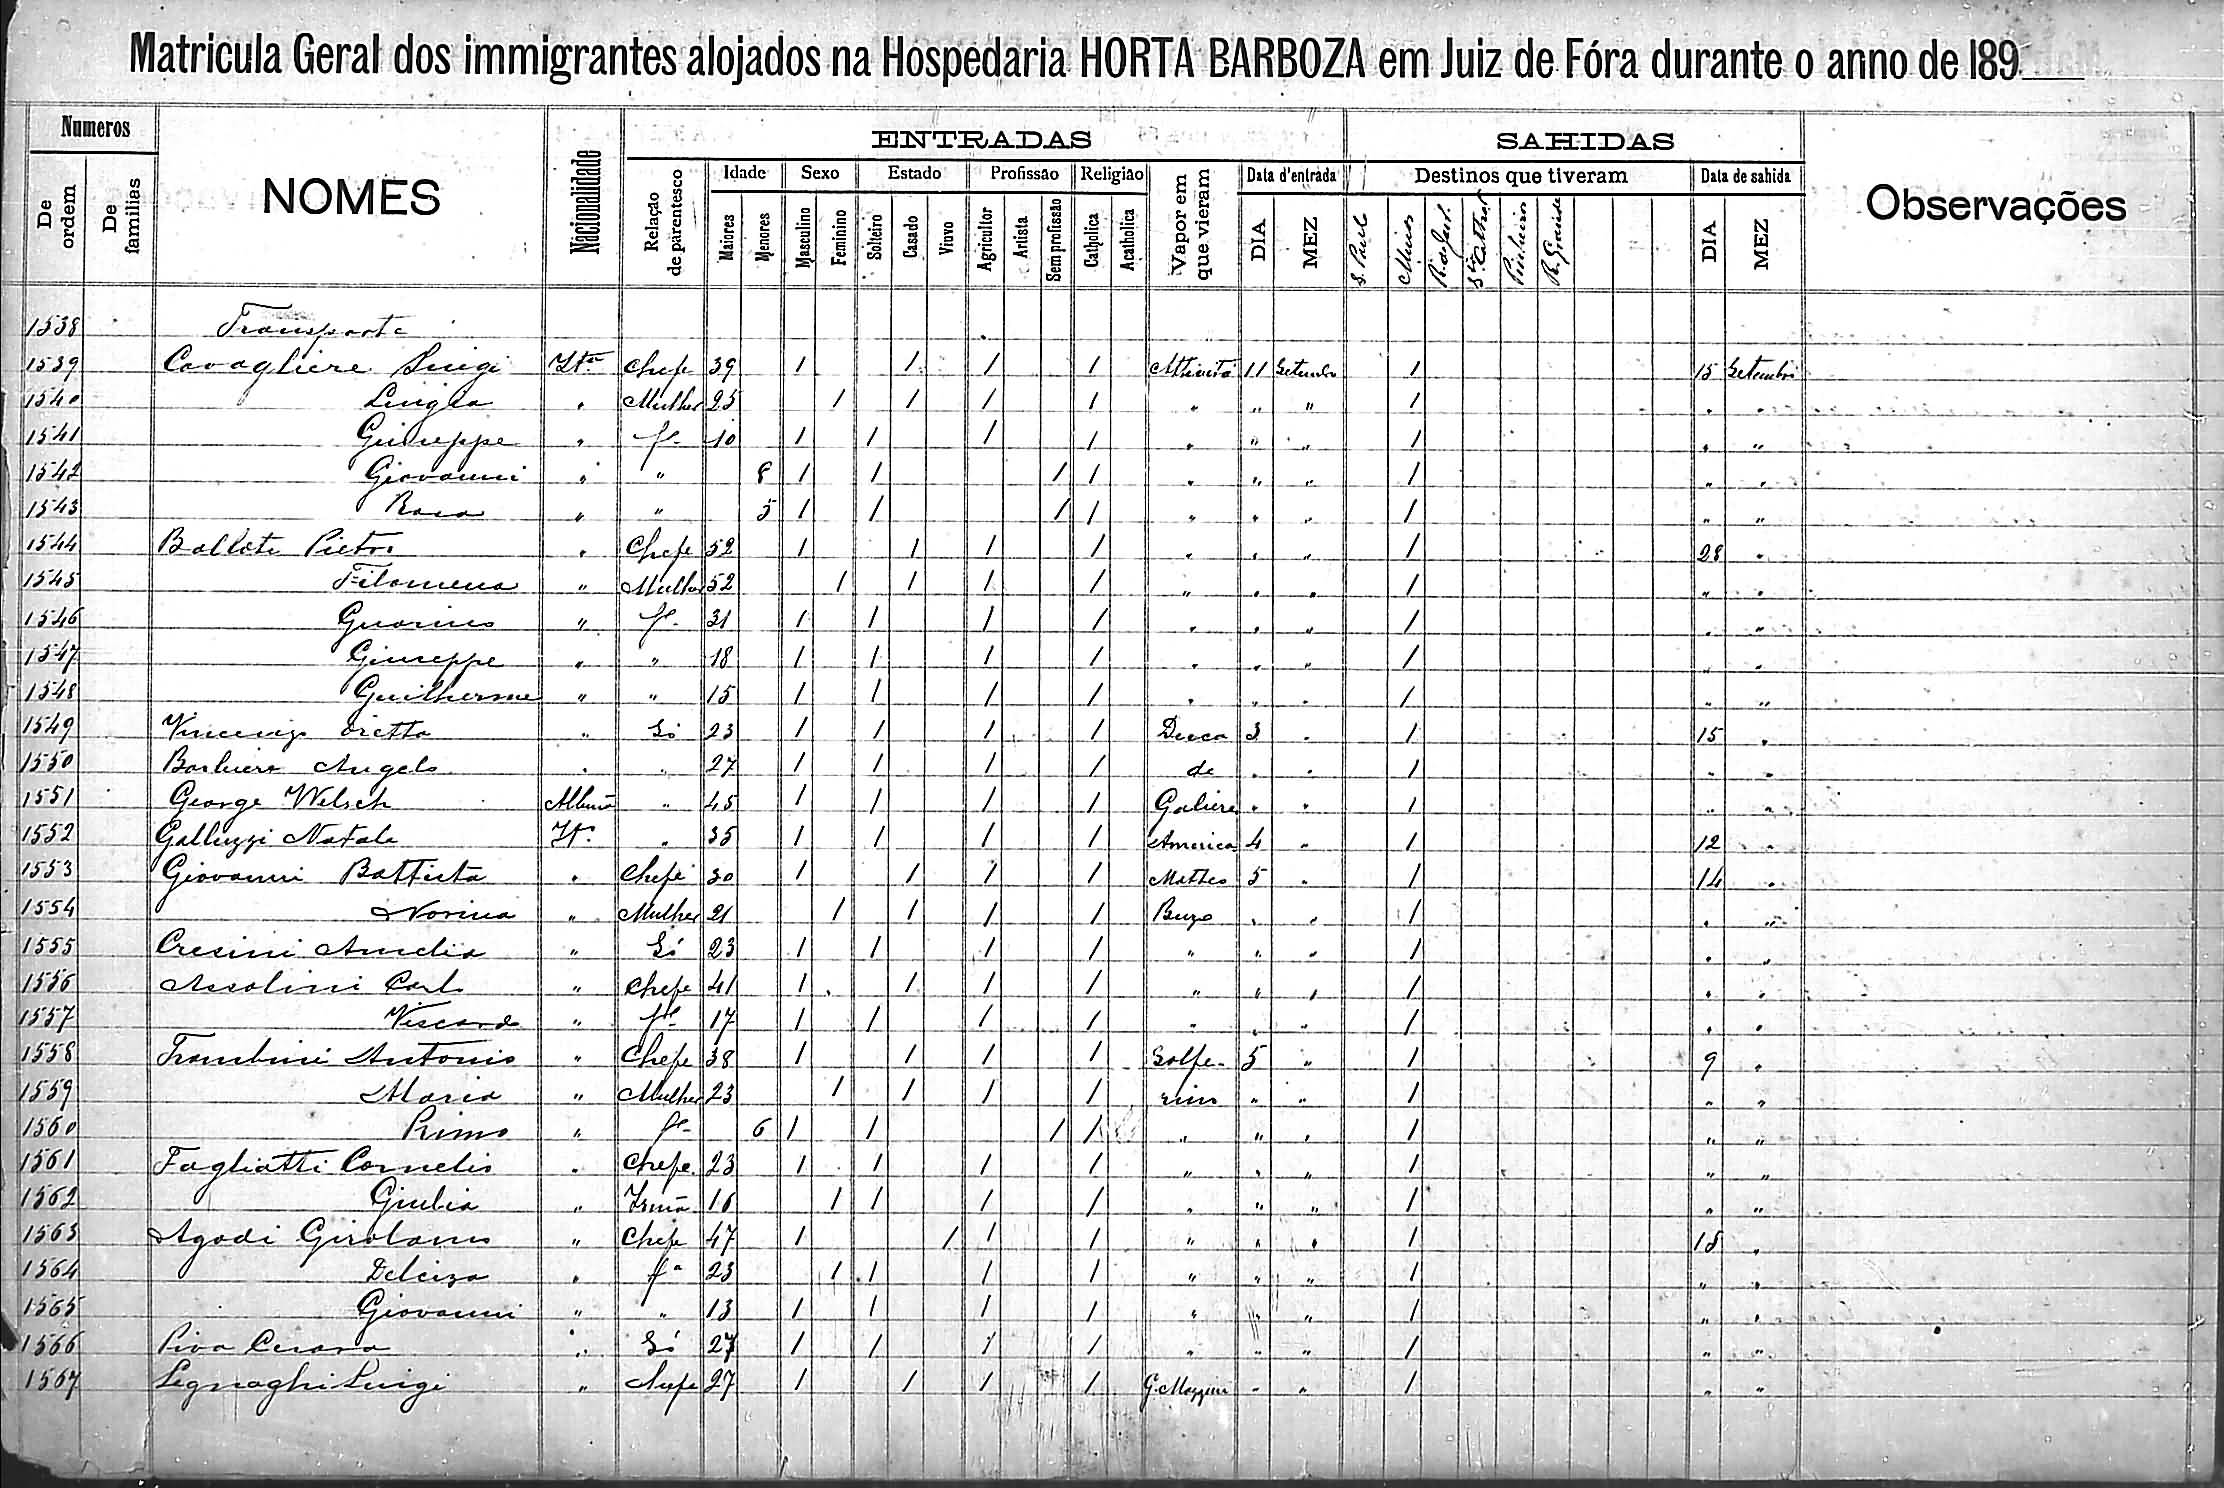 Matricula Geral dos immigrantes alojados na Hospedaria HORTA BARBOZA em Juiz de Fóra durante o anno de 189
Numeros
De ordem
De familias
NOMES
Nacionalidade
ENTRADAS
Relação de parentesco
Idade
Maiores
Menores
Sexo
Masculino
Feminino
Estado
Solteiro
Casado
Viuvo
Profissão
Agricultor
Artista
Sem profissão
Religião
Catholica
Acatholica
Vapor em que vieram
Data d'entrada
DIA
MEZ
SAHIDAS
Destinos que tiveram
S. Paulo
Minas
Sta Cathar
Pinheiros
R. Grande
Data de sahida
DIA
MEZ
Observações
1538 Transporte
1539 Cavagliere Luigi Itª Chefe 39 / / / / Attivitá 11 Setembro / 15 Setembro
1540 Luigia " Mulher 25 / / / / " " " / " "
1541 Giuseppe " fº 10 / / / / " " " / " "
1542 Giovanni " " 8 / / / / " " " / " "
1543 " " 5 / / / / " " " / " "
1544 Pietro " Chefe 52 / / / / " " " / 28 "
1545 Filomena " Mulher 52 / / / / " " " / " "
1546 Guarino " fº 31 / / / / " " " / " "
1547 Giuseppe " " 18 / / / / " " " / " "
1548 Guilherme " " 15 / / / / " " " / " "
1549 Vincenzo " Só 23 / / / / Duca 3 " / 15 "
1550 Barbiero Angelo " " 27 / / / / de " " / " "
1551 George Welsch Allemã " 45 / / / / Galiera " " / " "
1552 Galluzzi Natale Itº " 35 / / / / America 4 " / 12 "
1553 Giovanni Battista " Chefe 30 / / / / Matteo 5 " / 14 "
1554 Norina " Mulher 21 / / / / Buzo " " / " "
1555 Cresini Amelio " Só 23 / / / / " " " / " "
1556 Assolini Carlo " Chefe 41 / / / / " " " / " "
1557 Viscardo " fº 17 / / / / " " " / " "
1558 Trombini Antonio " Chefe 38 / / / / Solfe- 5 " / 9 "
1559 Maria " Mulher 23 / / / / rino " " / " "
1560 Primo " fº 6 / / / / " " " / " "
1561 Fagliatti Cornelio " Chefe 23 / / / / " " " / " "
1562 Giulia " Irmã 16 / / / / " " " / " "
1563 Agodi Girolamo " Chefe 47 / / / / " " " / 18 "
1564 Delciza " fª 23 / / / / " " " / " "
1565 Giovanni " " 13 / / / / " " " / " "
1566 Piva " Só 27 / / / / " " " / " "
1567 Legnaghi Luigi " Chefe 27 / / / / G. Mazzini " " / " "